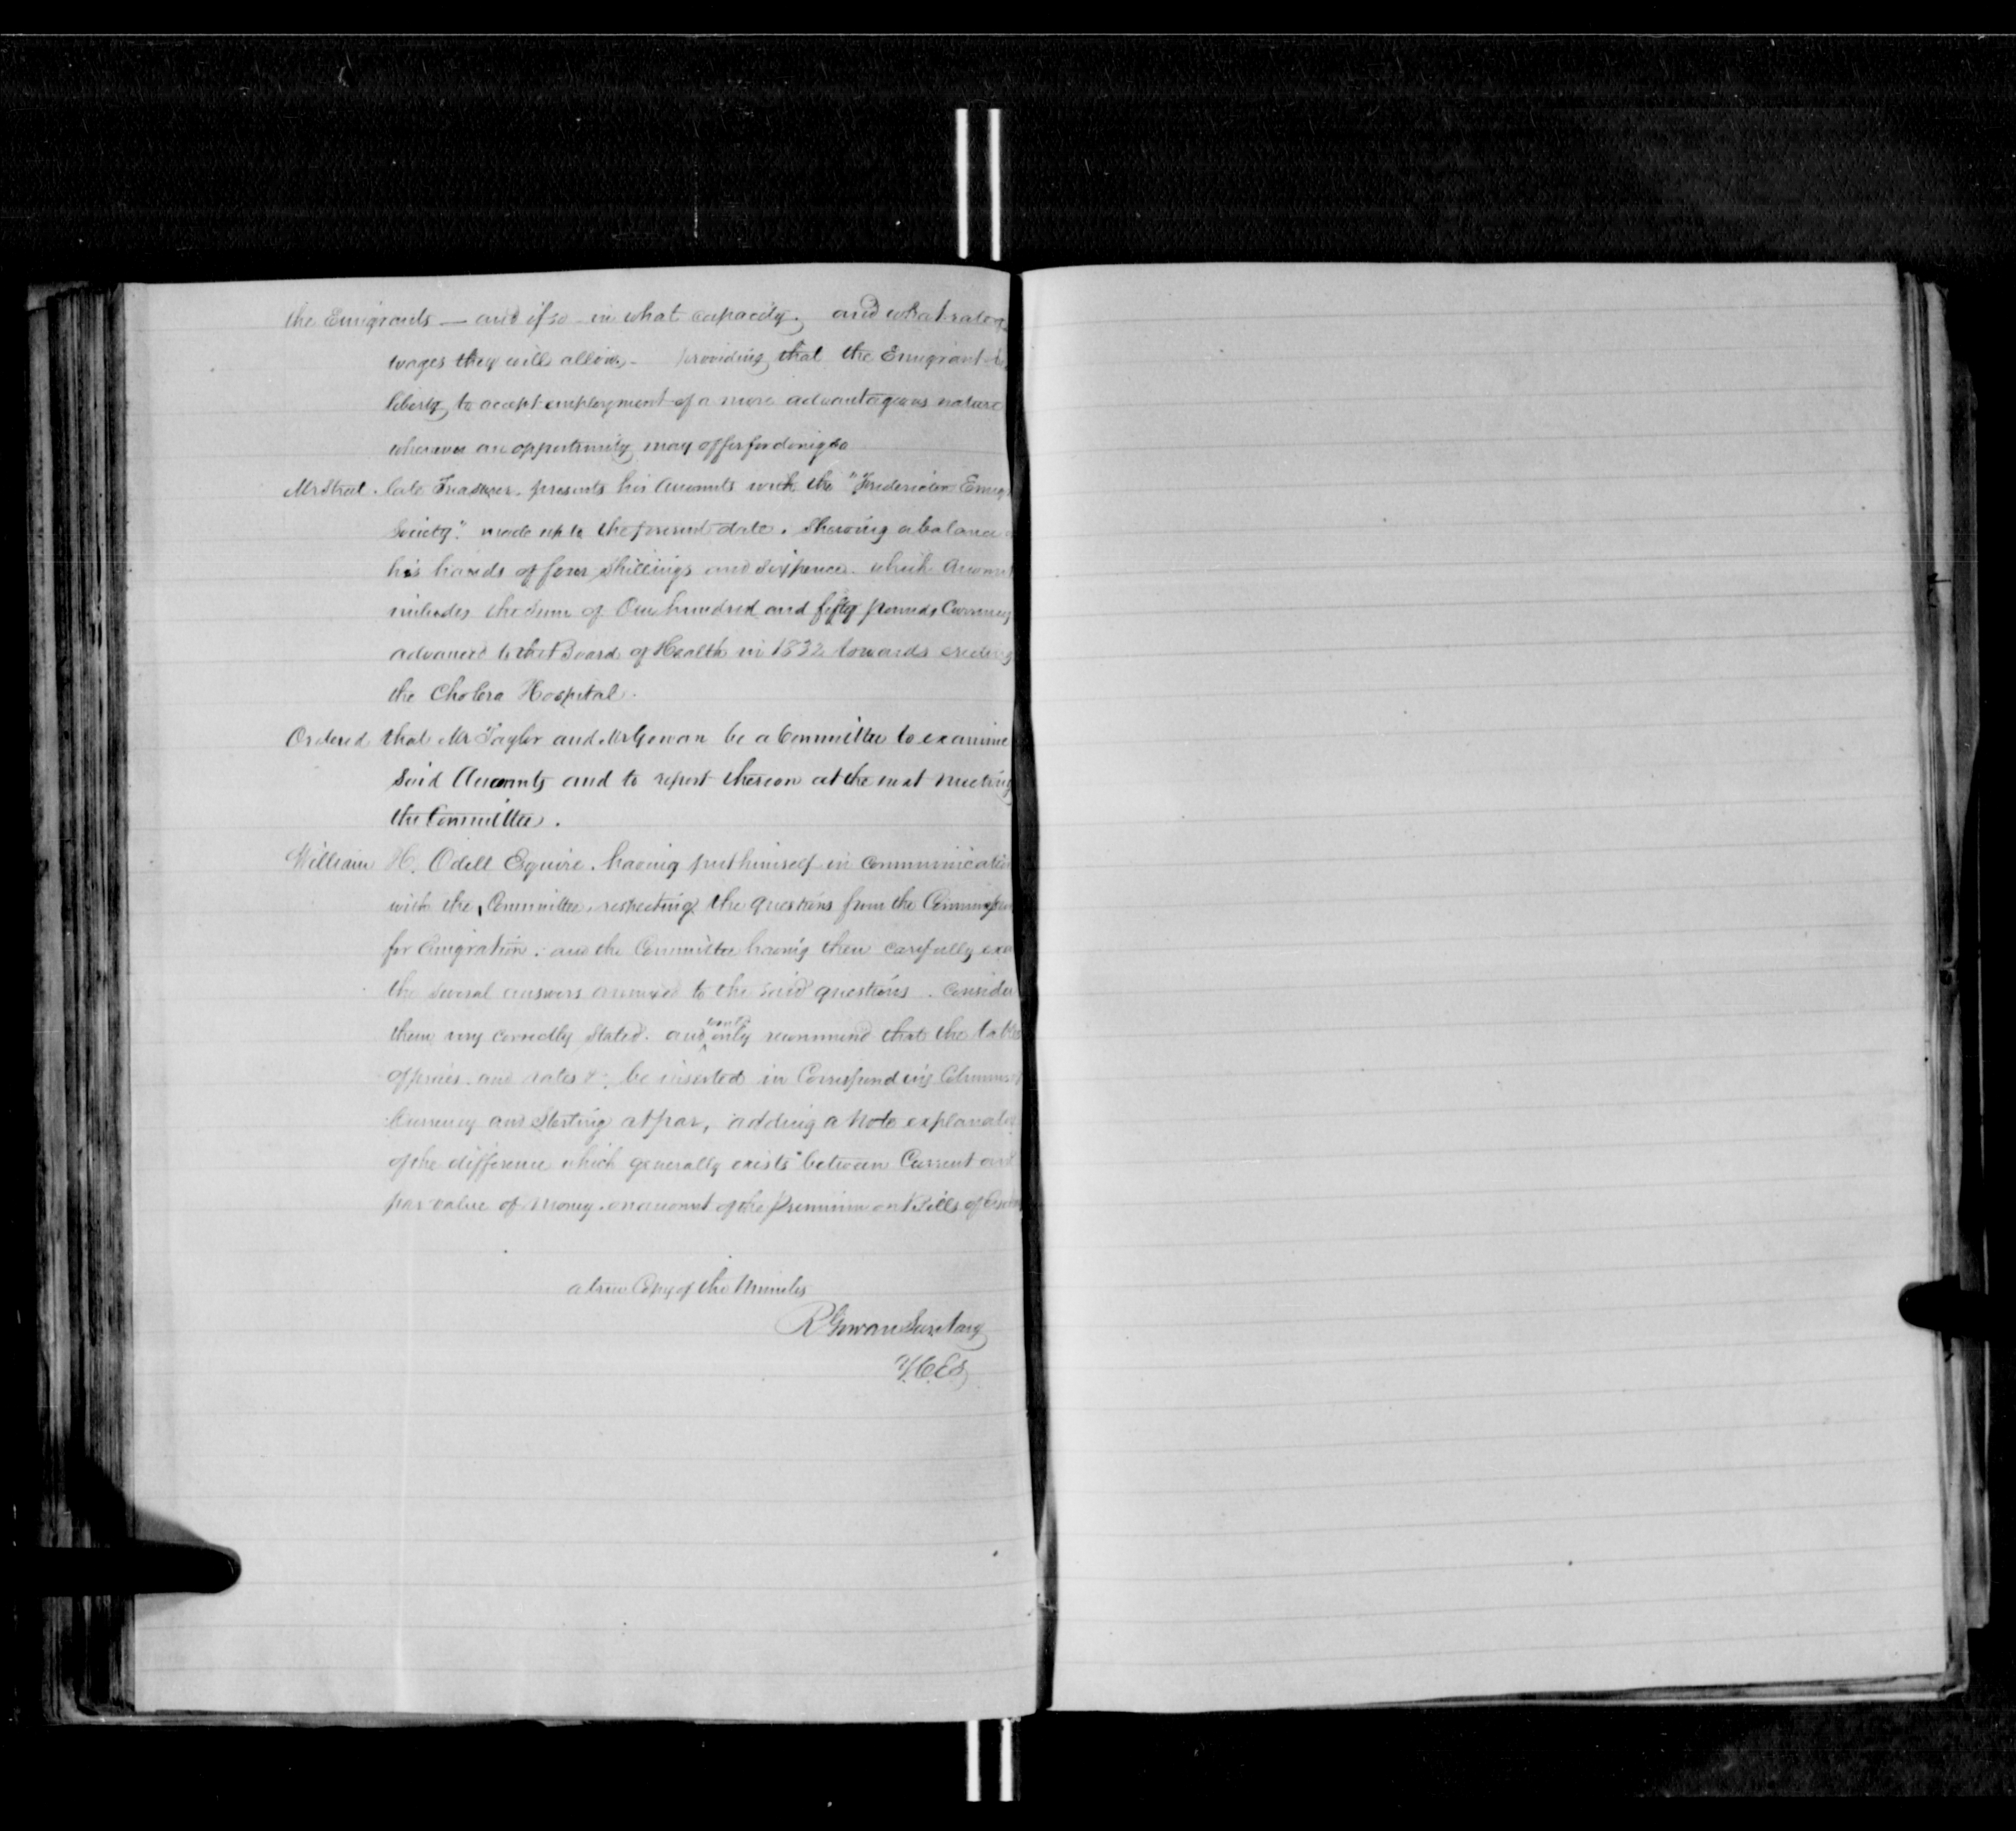 the Emigrants — and if so in what capacity. and what rate of
wages they will allow. providing that the Emigrant be
liberty to accept employment of a more advantageous nature
whenever an opportunity may offer for doing so
Mr Street. late Treasurer. presents his Accounts with the "Fredericton Emigr
Society." made up to the present date. Shewing a balance
his hands of four Shillings and Sixpence. which Amount
includes the Sum of One hundred and fifty pounds Currency
advanced to the Board of Health in 1832 towards erecting
the Cholera Hospital.
Ordered that Mr Taylor and Mr Gowan be a Committee to examine
Said Accounts and to report thereon at the next meeting
the Committee.
William H. Odell Esquire. having put himself in Communication
with the Committee. respecting the questions from the Commission
for Emigration. and the Committee having then carefully exa
the several answers annexed to the said questions. Consider
them very correctly Stated. and only recommend that the table
of prices and rates &c. be inserted in Corresponding Columns
Currency and Sterling at par, adding a Note explanator
of the difference which generally exists between Current and
par value of Money. on account of the Premium on Bills of
a true Copy of the Minutes
R Gowan Secretary
Y.C.E.S